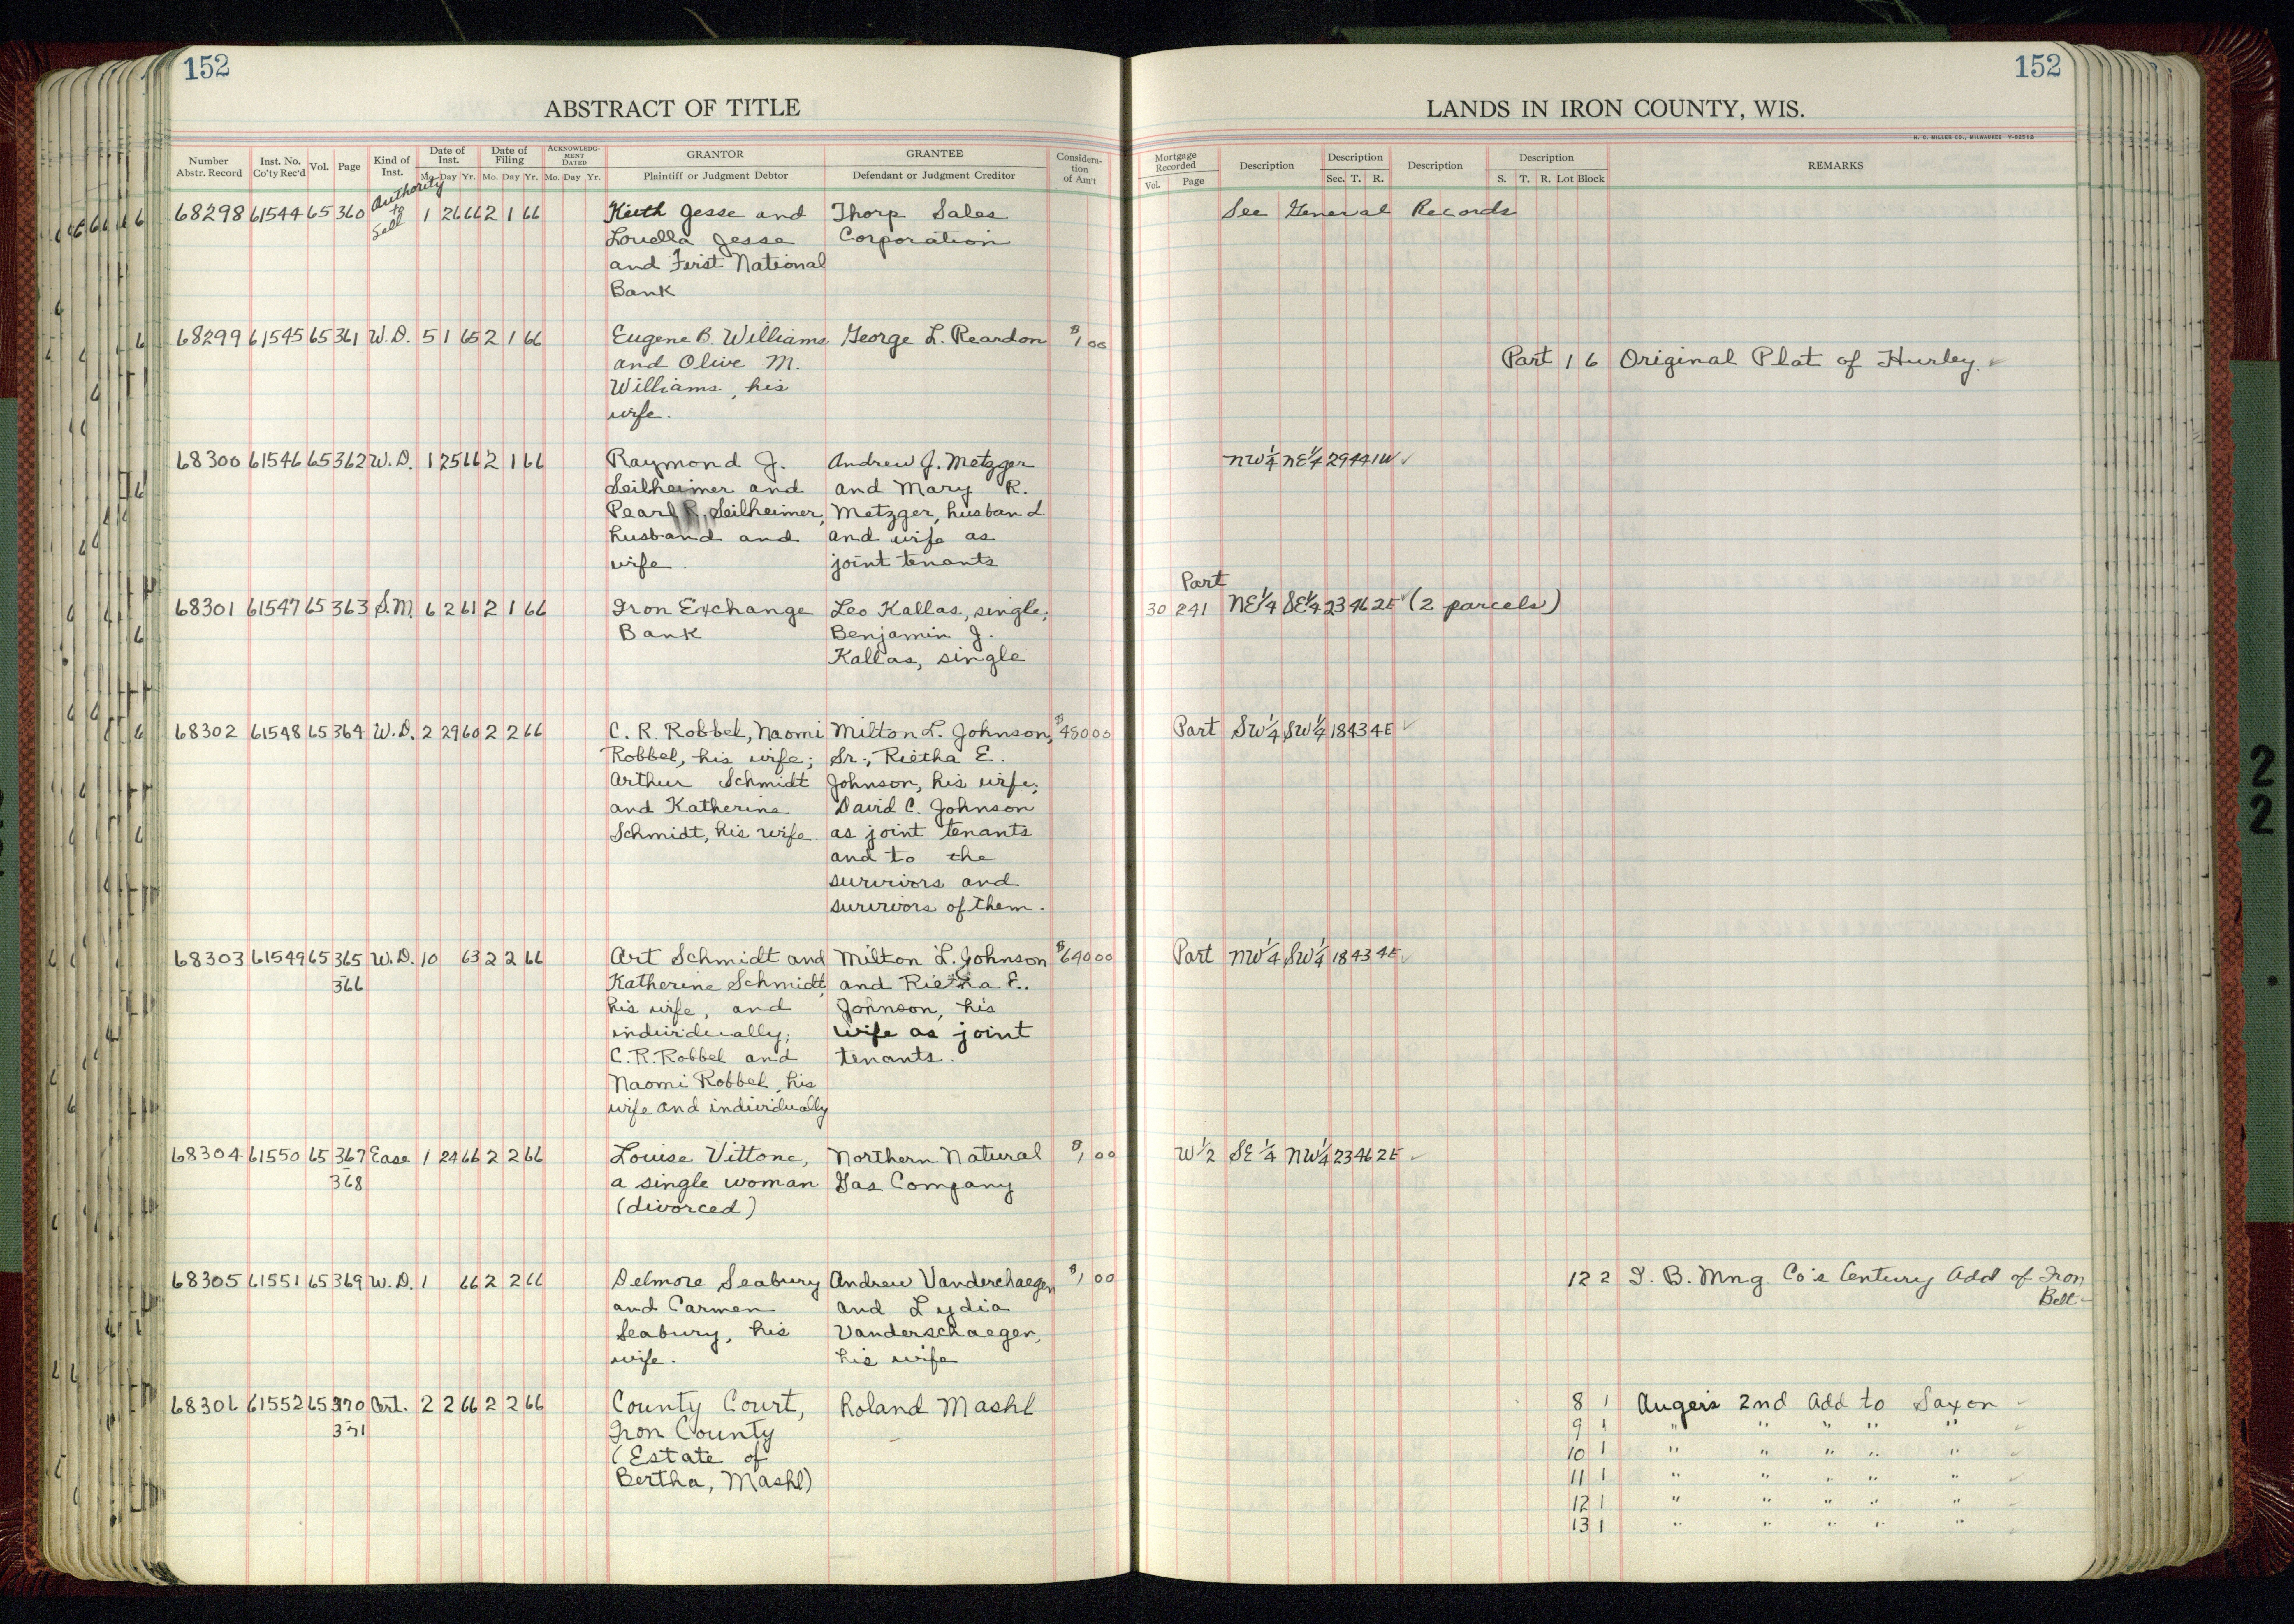 152
152
ABSTRACT OF TITLE
LANDS IN IRON COUNTY, WIS.
H. C. MILLER CO., MILWAUKEE
Number Abstr. Record
Inst. No. Co'ty Rec'd
Vol.
Page
Kind of Inst.
Date of Inst.
Mo. Day Yr.
Date of Filing
Mo. Day Yr.
ACKNOWLEDG-MENT DATED
Mo. Day Yr.
GRANTOR
Plaintiff or Judgment Debtor
GRANTEE
Defendant or Judgment Creditor
Considera-tion of Am't
Mortgage Recorded
Vol. Page
Description
Description
Sec. T. R.
Description
Description
S. T. R. Lot Block
REMARKS
68298 61544 65 360 Authority to Sell 1 26 66 2 1 66 Keith Jesse and Thorp Sales See General Records
Louella Jesse Corporation
and First National
Bank
68299 61545 65 361 W.D. 5 1 65 2 1 66 Eugene B. Williams George L. Reardon $1 00
and Olive M. Part 1 6 Original Plat of Hurley.
Williams, his
wife.
68300 61546 65 362 W.D. 1 25 66 2 1 66 Raymond J. Andrew J. Metzger NW¼ NE¼ 29 44 1W
Seilheimer and and Mary R.
Pearl R. Seilheimer, Metzger, husband
husband and and wife as
wife. joint tenants
Part
68301 61547 65 363 S.M. 6 2 61 2 1 66 Iron Exchange Leo Kallas, single; 30 241 NE¼ SE¼ 23 46 2E (2 parcels)
Bank Benjamin J.
Kallas, single
68302 61548 65 364 W.D. 2 29 60 2 2 66 C. R. Robbel, Naomi Milton L. Johnson, $480 00 Part SW¼ SW¼ 18 43 4E
Robbel, his wife; Sr., Rietha E.
Arthur Schmidt Johnson, his wife;
and Katherine David C. Johnson
Schmidt, his wife. as joint tenants
and to the
survivors and
survivors of them.
68303 61549 65 365 W.D. 10 63 2 2 66 Art Schmidt and Milton L. Johnson $640 00 Part NW¼ SW¼ 18 43 4E
366 Katherine Schmidt, and Rietha E.
his wife, and Johnson, his
individually; wife as joint
C.R. Robbel and tenants.
Naomi Robbel, his
wife and individually
68304 61550 65 367 Ease 1 24 66 2 2 66 Louise Vittone, Northern Natural $1 00 W½ SE¼ NW¼ 23 46 2E
368 a single woman Gas Company
(divorced)
68305 61551 65 369 W.D. 1 66 2 2 66 Delmore Seabury Andrew Vanderschaegen $1 00 12 2 I. B. Mng. Co's Century Add of Iron
and Carmen and Lydia Belt
Seabury, his Vanderschaegen,
wife. his wife
68306 61552 65 370 Cert. 2 2 66 2 2 66 County Court, Roland Mashl 8 1 Auger's 2nd Add to Saxon
371 Iron County 9 1 " " " " "
(Estate of 10 1 " " " " "
Bertha, Mashl) 11 1 " " " " "
12 1 " " " " "
13 1 " " " " "